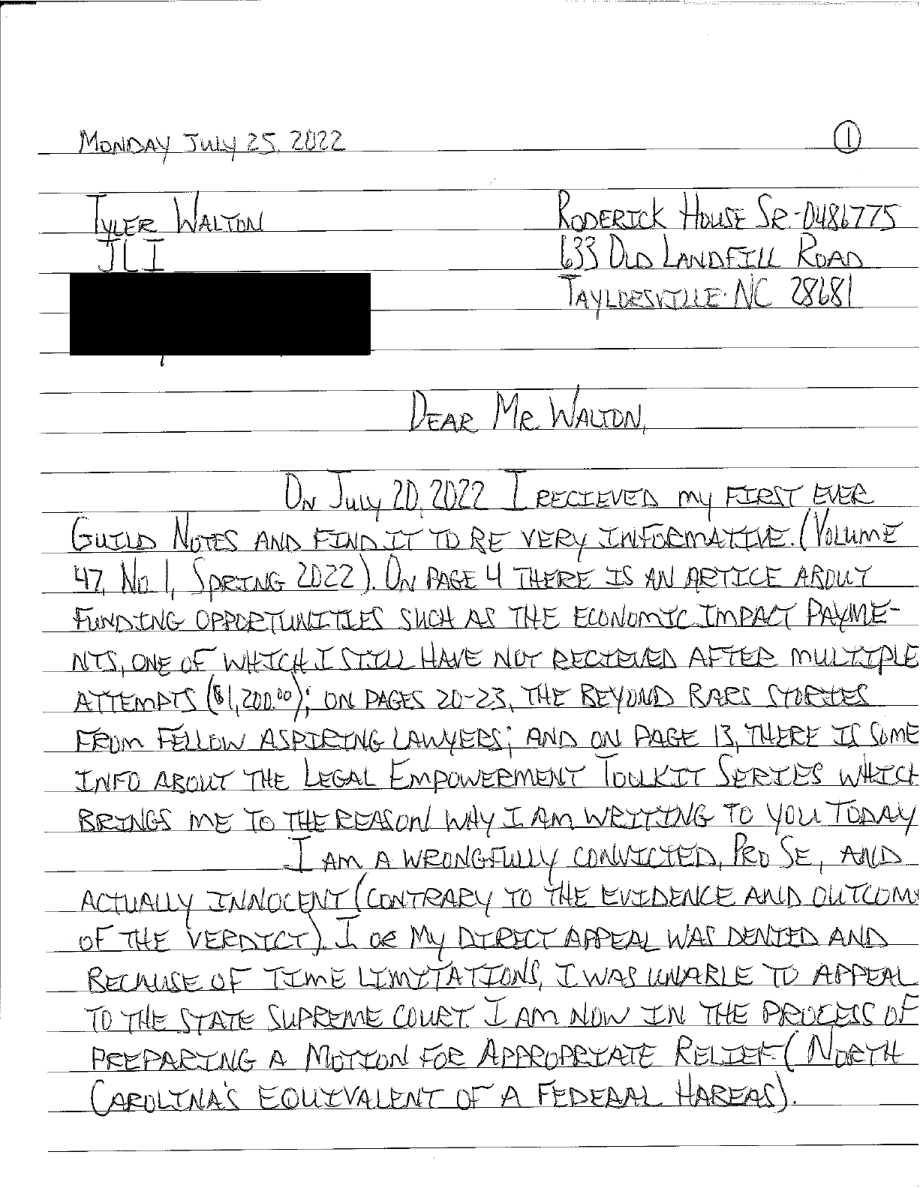 MONDAY JULY 25, 2022 ①
TYLER WALTON RODERICK HOUSE SR.-0486775
JLI 633 OLD LANDFILL ROAD
TAYLORSVILLE NC 28681
DEAR MR. WALTON,
ON JULY 20, 2022 I RECIEVED MY FIRST EVER
GUILD NOTES AND FIND IT TO BE VERY INFORMATIVE. (VOLUME
47, NO. 1, SPRING 2022). ON PAGE 4 THERE IS AN ARTICE ABOUT
FUNDING OPPORTUNITIES SUCH AS THE ECONOMIC IMPACT PAYME-
NTS, ONE OF WHICH I STILL HAVE NOT RECIEVED AFTER MULTIPLE
ATTEMPTS ($1,200.00); ON PAGES 20-23, THE BEYOND BARS STORIES
FROM FELLOW ASPIRING LAWYERS; AND ON PAGE 13, THERE IS SOME
INFO ABOUT THE LEGAL EMPOWERMENT TOOLKIT SERIES WHICH
BRINGS ME TO THE REASON WHY I AM WRITING TO YOU TODAY
I AM A WRONGFULLY CONVICTED, PRO SE, AND
ACTUALLY INNOCENT (CONTRARY TO THE EVIDENCE AND OUTCOME
OF THE VERDICT). I OR MY DIRECT APPEAL WAS DENIED AND
BECAUSE OF TIME LIMITATIONS, I WAS UNABLE TO APPEAL
TO THE STATE SUPREME COURT. I AM NOW IN THE PROCESS OF
PREPARING A MOTION FOR APPROPRIATE RELIEF (NORTH
CAROLINA'S EQUIVALENT OF A FEDERAL HABEAS).